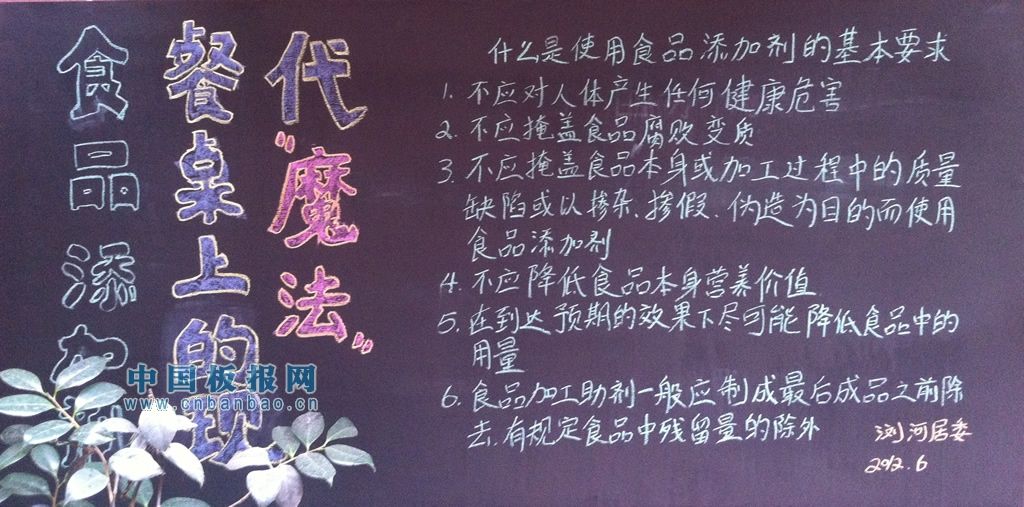 食品添加剂
餐桌上的现
代“魔法”
什么是使用食品添加剂的基本要求
1. 不应对人体产生任何健康危害
2. 不应掩盖食品腐败变质
3. 不应掩盖食品本身或加工过程中的质量
缺陷或以掺杂、掺假、伪造为目的而使用
食品添加剂
4. 不应降低食品本身营养价值
5. 在到达预期的效果下尽可能降低食品中的
用量
6. 食品加工助剂一般应制成最后成品之前除
去,有规定食品中残留量的除外
浏河居委
2012.6
中国板报网
www.cnbanbao.cn